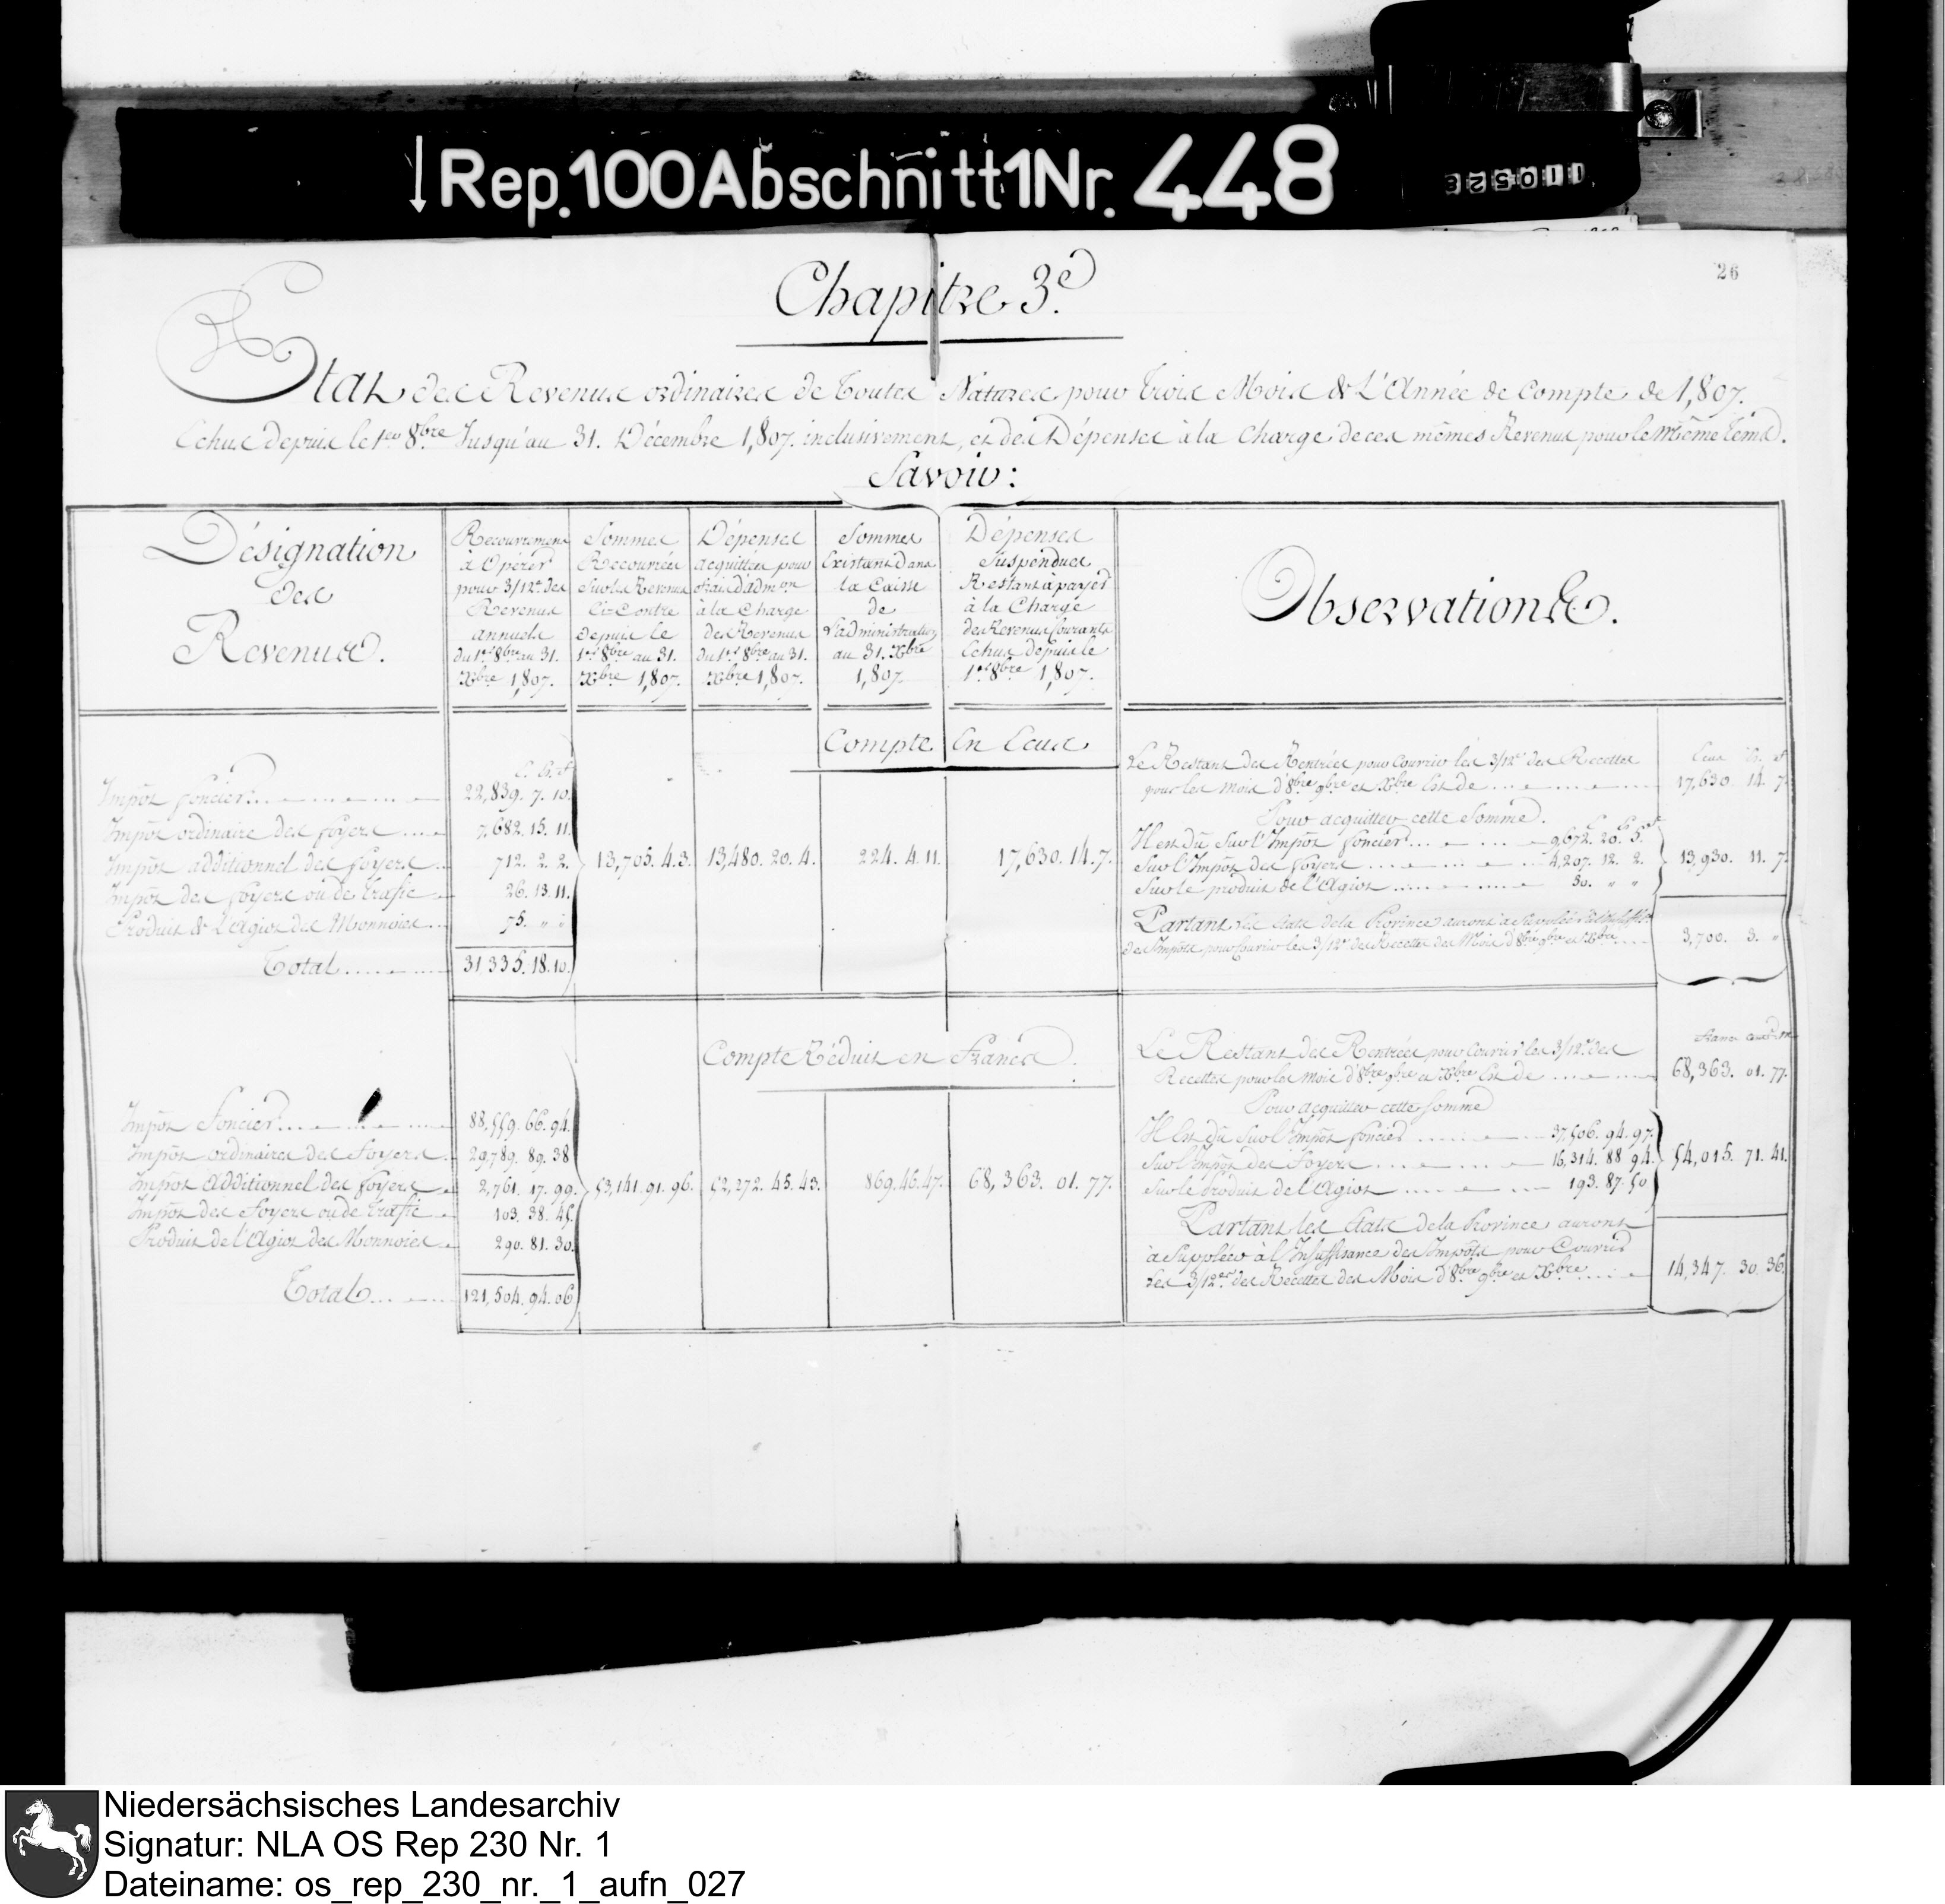 ↓Rep.100Abschnitt1Nr. 448
110528
26
Chapitre 3.e
Etat des Revenus ordinaires de toutes Natures pour trois Mois de L'Année de Compte de 1,807.
Echus depuis le 1.er 8bre Jusqu'au 31. Décembre 1,807. inclusivement, et des Dépenses à la Charge de ces mêmes Revenus pour le Même tems.
Savoir:
Désignation
des
Revenus.
Recouvremens
à Opérer
pour 3/12.es des
Revenus
annuels
du 1.er 8bre au 31.
Xbre 1,807.
Sommes
Recouvrées
sur les Revenus
Ci-Contre
depuis le
1.er 8bre au 31.
Xbre 1,807.
Dépenses
acquittées pour
frais d'adm.on
à la Charge
des Revenus
du 1.er 8bre au 31.
Xbre 1,807.
Sommes
Existant dans
la Caisse
de
L'administration
au 31. Xbre
1,807.
Dépenses
Suspendues
Restant à payer
à la Charge
des Revenus Courants
Echus depuis le
1.er 8bre 1,807.
Observations.
Compte En Ecus
Impôt foncier 22,839. 7. 10.
Impôt ordinaire des foyers 7,682. 15. 11.
Impôt additionnel des foyers 712. 2. 2.
Impôt des foyers ou de trafic 26. 13. 11.
Produit de L'Agiot des Monnoies 75. " "
Total 31,335. 18. 10.
13,705. 4. 3.
13,480. 20. 4.
224. 4. 11.
17,630. 14. 7.
Le Restant des Rentrées pour Couvrir les 3/12.es des Recettes
pour les mois d'8bre 9bre et Xbre Est de 17,630. 14. 7.
Pour acquitter cette Somme.
Il est dû Sur l'Impôt foncier 9,672. 20. 5.
Sur l'Impôt des foyers 4,207. 12. 2.
Sur le produit de l'Agiot 50. " "
13,930. 11. 7.
Partant les Etats de la Province auront à Suppléer à l'Insuffisance
des Impôts pour Couvrir les 3/12.es des Recettes des Mois d'8bre 9bre et Xbre 3,700. 3. "
Compte Réduit en Francs.
Impôt Foncier 88,559. 66. 94.
Impôt ordinaire des Foyers 29,789. 89. 38
Impôt Additionnel des foyers 2,761. 17. 99.
Impôt des Foyers ou de trafic 103. 38. 45.
Produit de l'Agiot des Monnoies 290. 81. 30.
Total 121,504. 94. 06
53,141. 91. 96.
52,272. 45. 43.
869. 46. 47.
68,363. 01. 77.
Le Restant des Rentrées pour Couvrir les 3/12.es des
Recettes pour les mois d'8bre 9bre et Xbre Est de 68,363. 01. 77.
Pour acquitter cette Somme
Il Est dû Sur l'Impôt foncier 37,506. 94. 97.
Sur l'Impôt des Foyers 16,314. 88. 94.
Sur le produit de l'Agiot 193. 87. 50
54,015. 71. 41.
Partant les Etats de la Province auront
à Suppléer à l'Insuffisance des Impôts pour Couvrir
les 3/12.es des Recettes des Mois d'8bre 9bre et Xbre 14,347. 30. 36.
Niedersächsisches Landesarchiv
Signatur: NLA OS Rep 230 Nr. 1
Dateiname: os_rep_230_nr._1_aufn_027